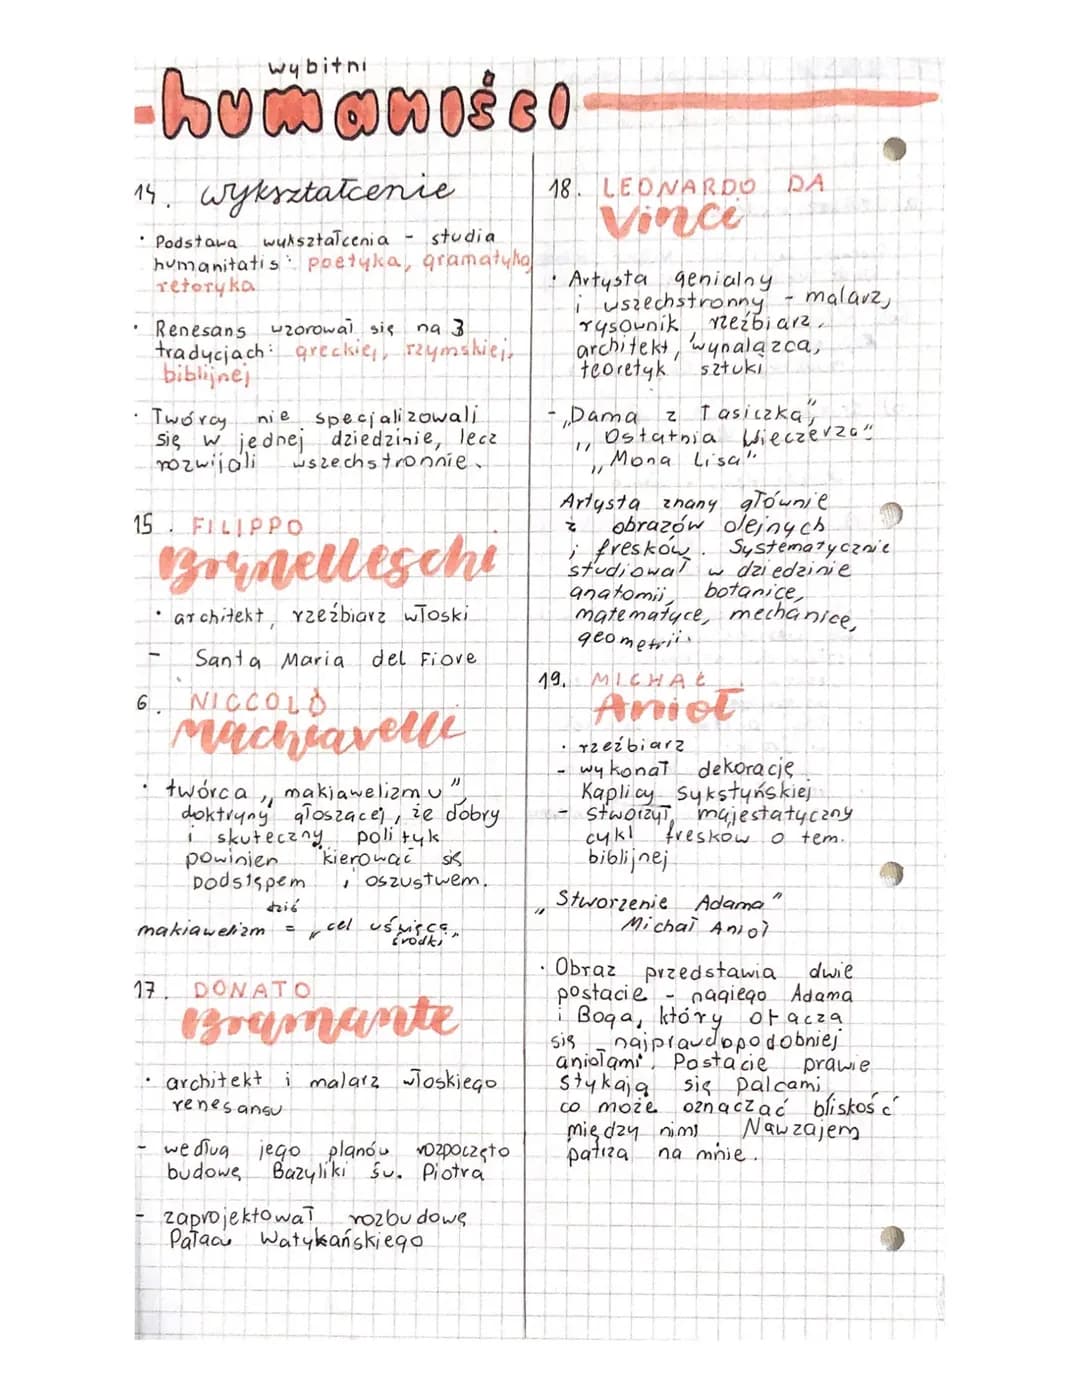 wybitni
humaniści
14. wykształcenie
• Podstawa wykształcenia - studia
humanitatis: poetyka, gramatyka
retoryka
• Renesans wzorował się na 3
tradycjach: greckiej, rzymskiej,
biblijnej
• Twórcy nie specjalizowali
się w jednej dziedzinie, lecz
rozwijali wszechstronnie.
15. FILIPPO
Brunelleschi
• architekt, rzeźbiarz włoski
- Santa Maria del Fiore
6. NICCOLÒ
Machiavelli
• twórca „makiawelizmu”
doktryny głoszącej, że dobry
i skuteczny polityk
powinien kierować się
podstępem i oszustwem.
dziś
makiawelizm = „cel uświęca
środki”
17. DONATO
Bramante
• architekt i malarz włoskiego
renesansu
- według jego planów rozpoczęto
budowę Bazyliki św. Piotra
- zaprojektował rozbudowę
Pałacu Watykańskiego
18. LEONARDO DA
Vinci
• Artysta genialny
i wszechstronny - malarz,
rysownik, rzeźbiarz,
architekt, wynalazca,
teoretyk sztuki
- „Dama z Łasiczką”,
„Ostatnia Wieczerza”
„Mona Lisa”.
Artysta znany głównie
z obrazów olejnych
i fresków. Systematycznie
studiował w dziedzinie
anatomii, botanice,
matematyce, mechanice,
geometrii.
19. MICHAŁ
Anioł
• rzeźbiarz
- wykonał dekorację
Kaplicy Sykstyńskiej
- stworzył majestatyczny
cykl fresków o tem.
biblijnej
„Stworzenie Adama”
Michał Anioł
• Obraz przedstawia dwie
postacie - nagiego Adama
i Boga, który otacza
się najprawdopodobniej
aniołami. Postacie prawie
stykają się palcami,
co może oznaczać bliskość
między nimi Nawzajem
patrzą na mnie.